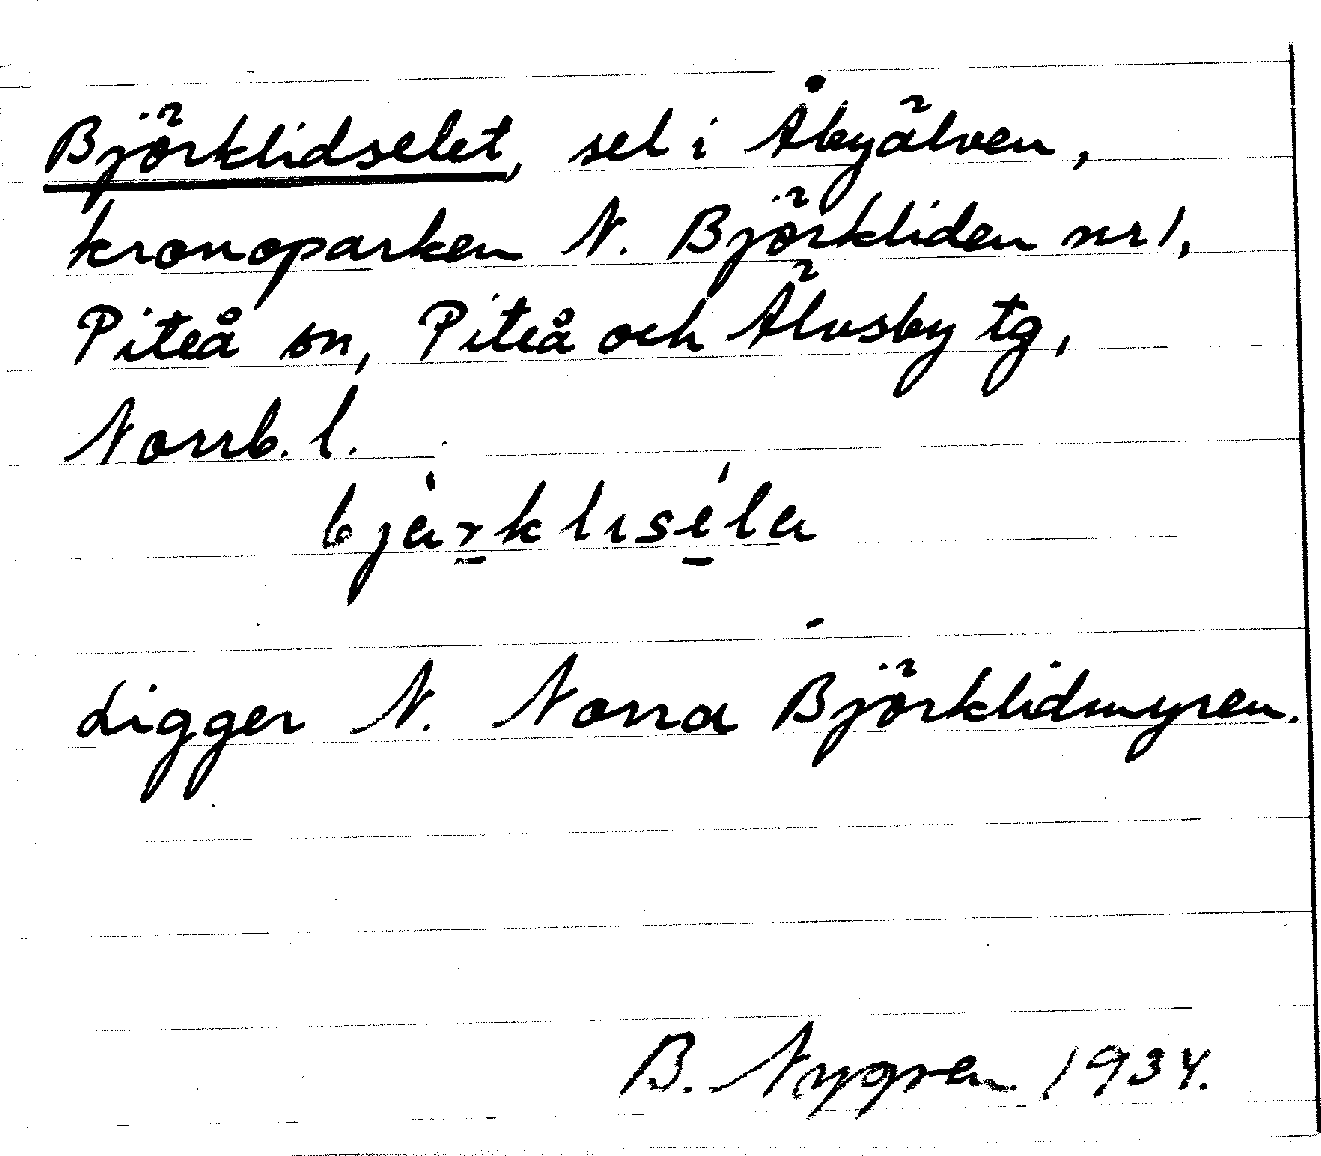 Björklidselet, sel i Åbyälven,
kronoparken N. Björkliden nr 1,
Piteå sn, Piteå och Älvsby tg,
Norrb. l.
bjὰr̲klısé̲la
Ligger N. Norra Björklidmyren.
B. Nygren 1934.